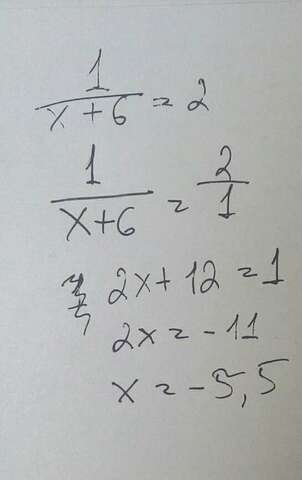 1/(x+6) = 2
1/(x+6) = 2/1
2x+12 = 1
2x = -11
x = -5,5